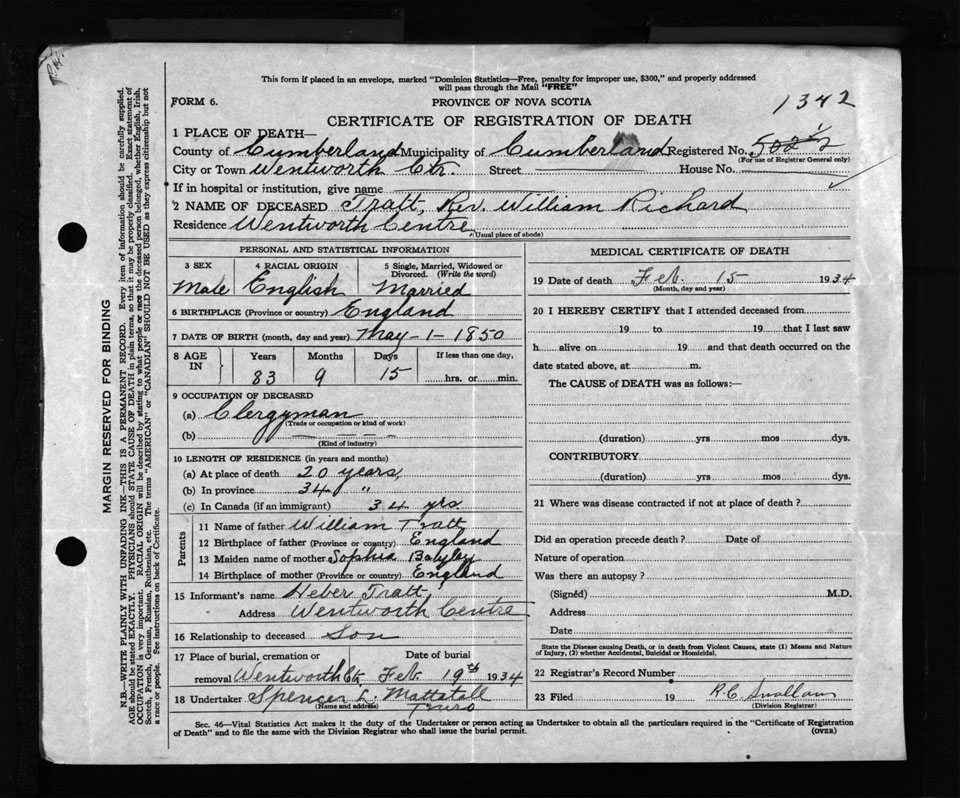 This form if placed in an envelope, marked "Dominion Statistics—Free, penalty for improper use, $300," and properly addressed
will pass through the Mail "FREE"
FORM 6.
PROVINCE OF NOVA SCOTIA
1342
CERTIFICATE OF REGISTRATION OF DEATH
1 PLACE OF DEATH—
County of Cumberland Municipality of Cumberland Registered No. 502 1/2
(For use of Registrar General only)
City or Town Wentworth Ctr. Street House No.
If in hospital or institution, give name
2 NAME OF DECEASED Tratt, Rev. William Richard
Residence Wentworth Centre
(Usual place of abode)
PERSONAL AND STATISTICAL INFORMATION
3 SEX 4 RACIAL ORIGIN 5 Single, Married, Widowed or
Divorced. (Write the word)
Male English Married
6 BIRTHPLACE (Province or country) England
7 DATE OF BIRTH (month, day and year) May-1-1850
8 AGE IN Years Months Days If less than one day,
83 9 15 hrs. or min.
9 OCCUPATION OF DECEASED
(a) Clergyman
(Trade or occupation or kind of work)
(b)
(Kind of industry)
10 LENGTH OF RESIDENCE (in years and months)
(a) At place of death 20 years,
(b) In province 34 "
(c) In Canada (if an immigrant) 34 yrs.
Parents
11 Name of father William Tratt
12 Birthplace of father (Province or country) England
13 Maiden name of mother Sophia
14 Birthplace of mother (Province or country) England
15 Informant's name Heber Tratt
Address Wentworth Centre
16 Relationship to deceased Son
17 Place of burial, cremation or Date of burial
removal Wentworth Ctr. Feb. 19th 1934
18 Undertaker Spencer L. Mattatall
(Name and address)
Truro
MEDICAL CERTIFICATE OF DEATH
19 Date of death Feb. 15 1934
(Month, day and year)
20 I HEREBY CERTIFY that I attended deceased from
19 to 19 that I last saw
h alive on 19 and that death occurred on the
date stated above, at m.
The CAUSE of DEATH was as follows:—
(duration) yrs mos dys.
CONTRIBUTORY
(duration) yrs mos dys.
21 Where was disease contracted if not at place of death?
Did an operation precede death? Date of
Nature of operation
Was there an autopsy?
(Signed) M.D.
Address
Date
State the Disease causing Death, or in death from Violent Causes, state (1) Means and Nature
of Injury, (2) whether Accidental, Suicidal or Homicidal.
22 Registrar's Record Number
23 Filed 19 R.C.
(Division Registrar)
Sec. 46—Vital Statistics Act makes it the duty of the Undertaker or person acting as Undertaker to obtain all the particulars required in the "Certificate of Registration
of Death" and to file the same with the Division Registrar who shall issue the burial permit.
(OVER)
MARGIN RESERVED FOR BINDING
N.B.—WRITE PLAINLY WITH UNFADING INK—THIS IS A PERMANENT RECORD. Every item of information should be carefully supplied.
AGE should be stated EXACTLY. PHYSICIANS should STATE CAUSE OF DEATH in plain terms, so that it may be properly classified. Exact statement of
OCCUPATION is very important. RACIAL ORIGIN will be described by stating to what people or race the deceased person belonged, whether English, Irish,
Scotch, French, German, Russian, Ruthenian, etc. The terms "AMERICAN" or "CANADIAN" SHOULD NOT BE USED as they express citizenship but not
a race or people. See instructions on back of Certificate.